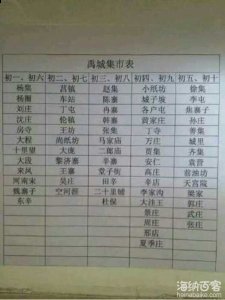 禹城集市表
初一、初六 初二、初七 初三、初八 初四、初九 初五、初十
杨集 莒镇 赵集 小纸坊 徐集
杨圈 车站 陈寨 城子坡 李屯
刘庄 丁屯 冉寨 各户屯 焦寨子
沈庄 轮镇 韩寨 孙庄
房寺 王坊 张集 丁寺 善集
大程 尚纸坊 马家庙 万庄 城里
十里望 大庞 二郎庙 贾集 齐集
大段 黎济寨 辛寨 安仁 袁营
来凤 王寨 堂子街 高庄 前油坊
河南宋 吴庄 田辛 辛店 天宫院
魏寨子 空河涯 二十里铺 李家沟 梁家
东辛 杜保 大洼王 郭庄
景庄 武庄
周庄 张庄
邢店
夏季庄
海纳百客